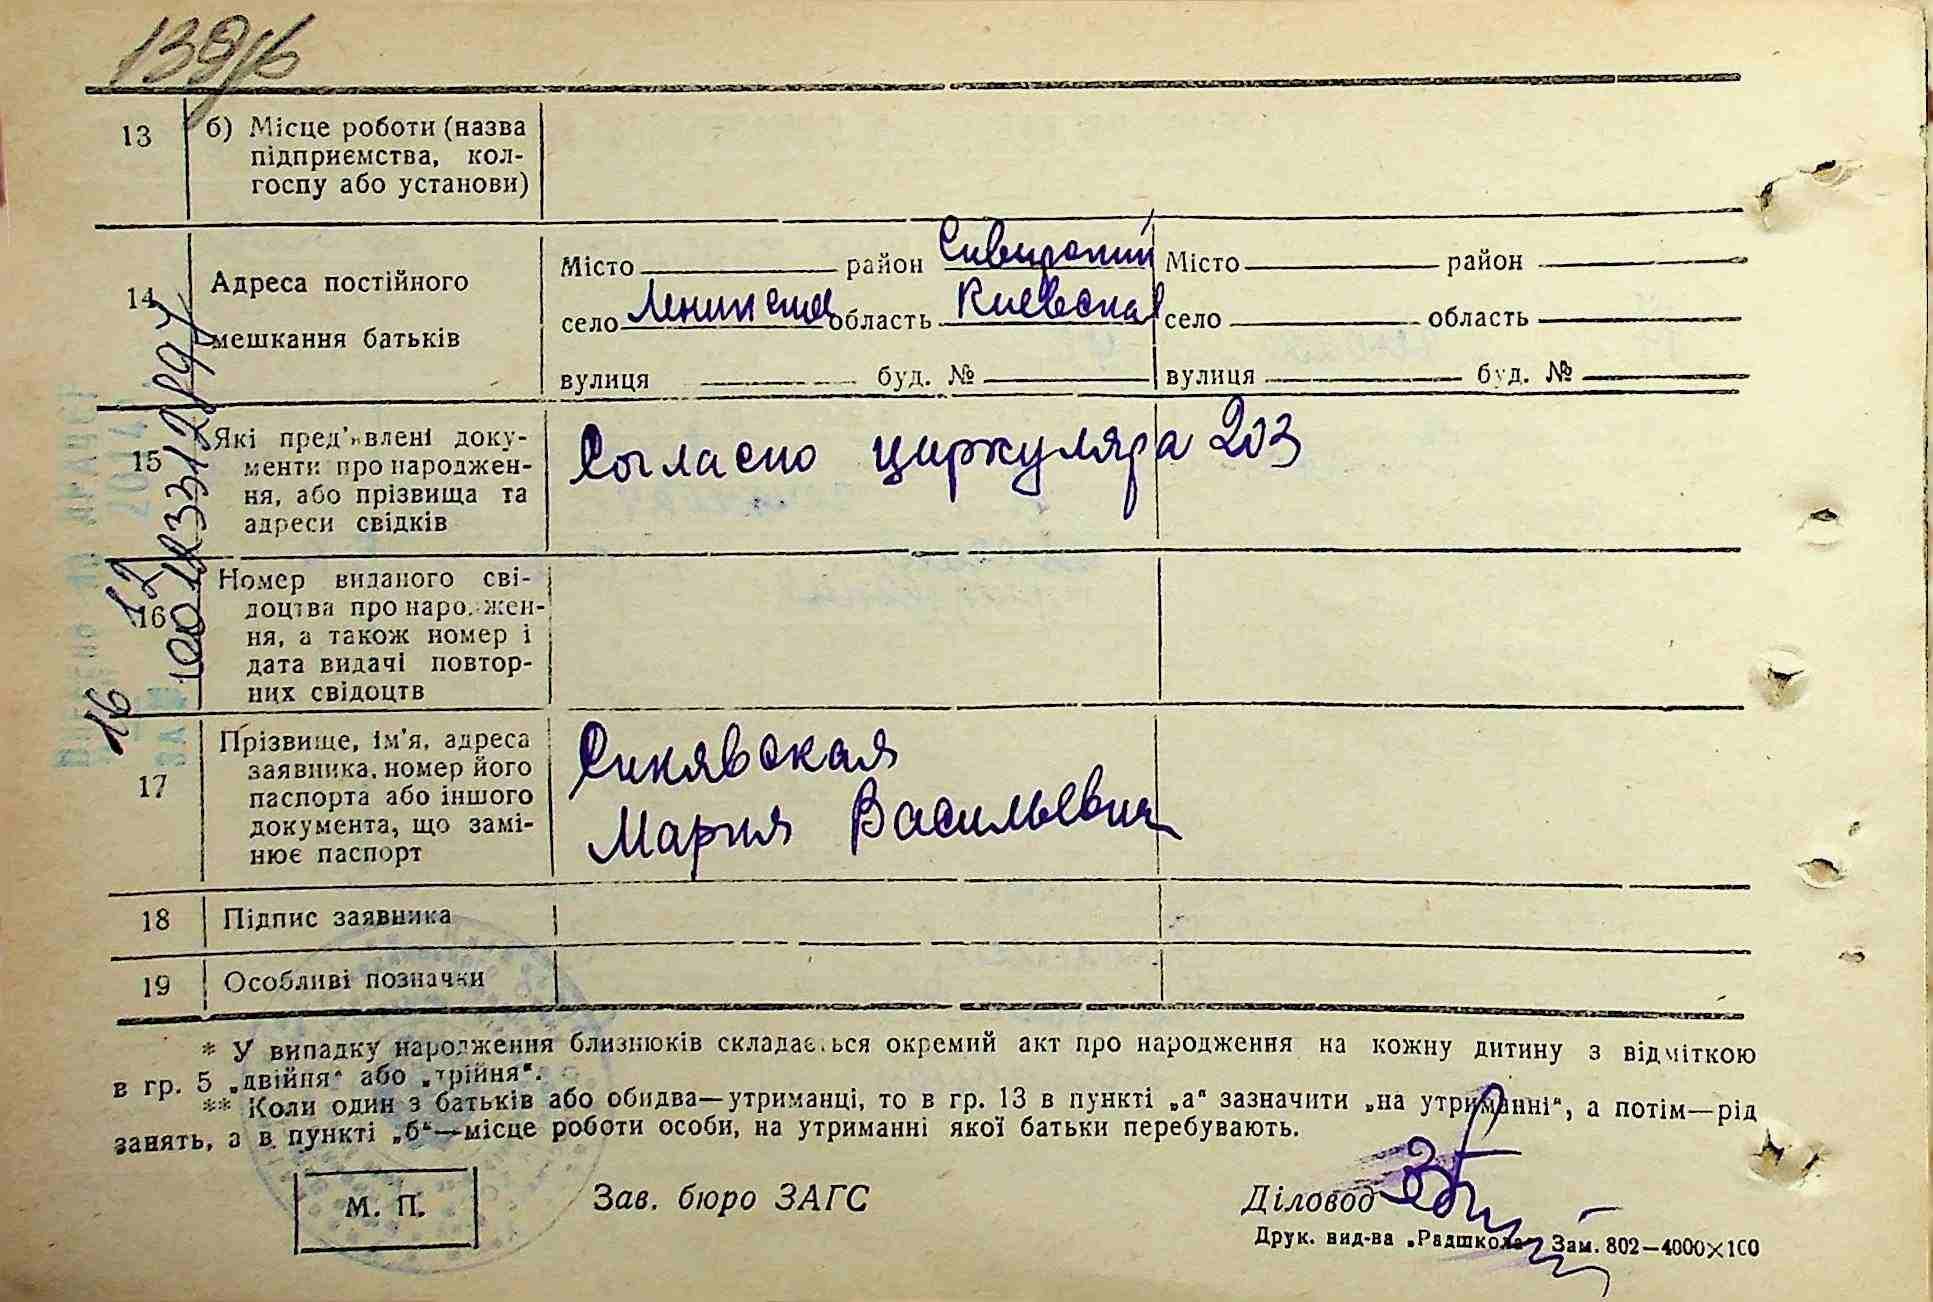 139/6
13
б) Місце роботи (назва
підприємства, кол-
госпу або установи)
14
Адреса постійного
мешкання батьків
Місто район
село Ленинская область Киевская
вулиця буд. №
Місто район
село область
вулиця буд. №
15
Які пред'явлені доку-
менти про народжен-
ня, або прізвища та
адреси свідків
Согласно циркуляра 203
16
Номер виданого сві-
доцтва про народжен-
ня, а також номер і
дата видачі повтор-
них свідоцтв
17
Прізвище, ім'я, адреса
заявника, номер його
паспорта або іншого
документа, що замі-
нює паспорт
Синявская
Мария Васильевна
18
Підпис заявника
19
Особливі позначки
* У випадку народження близнюків складається окремий акт про народження на кожну дитину з відміткою
в гр. 5 „двійня“ або „трійня“.
** Коли один з батьків або обидва—утриманці, то в гр. 13 в пункті „а“ зазначити „на утриманні“, а потім—рід
занять, а в пункті „б“—місце роботи особи, на утриманні якої батьки перебувають.
М. П.
Зав. бюро ЗАГС
Діловод
Друк. вид-ва „Радшкола“ Зам. 802—4000×100